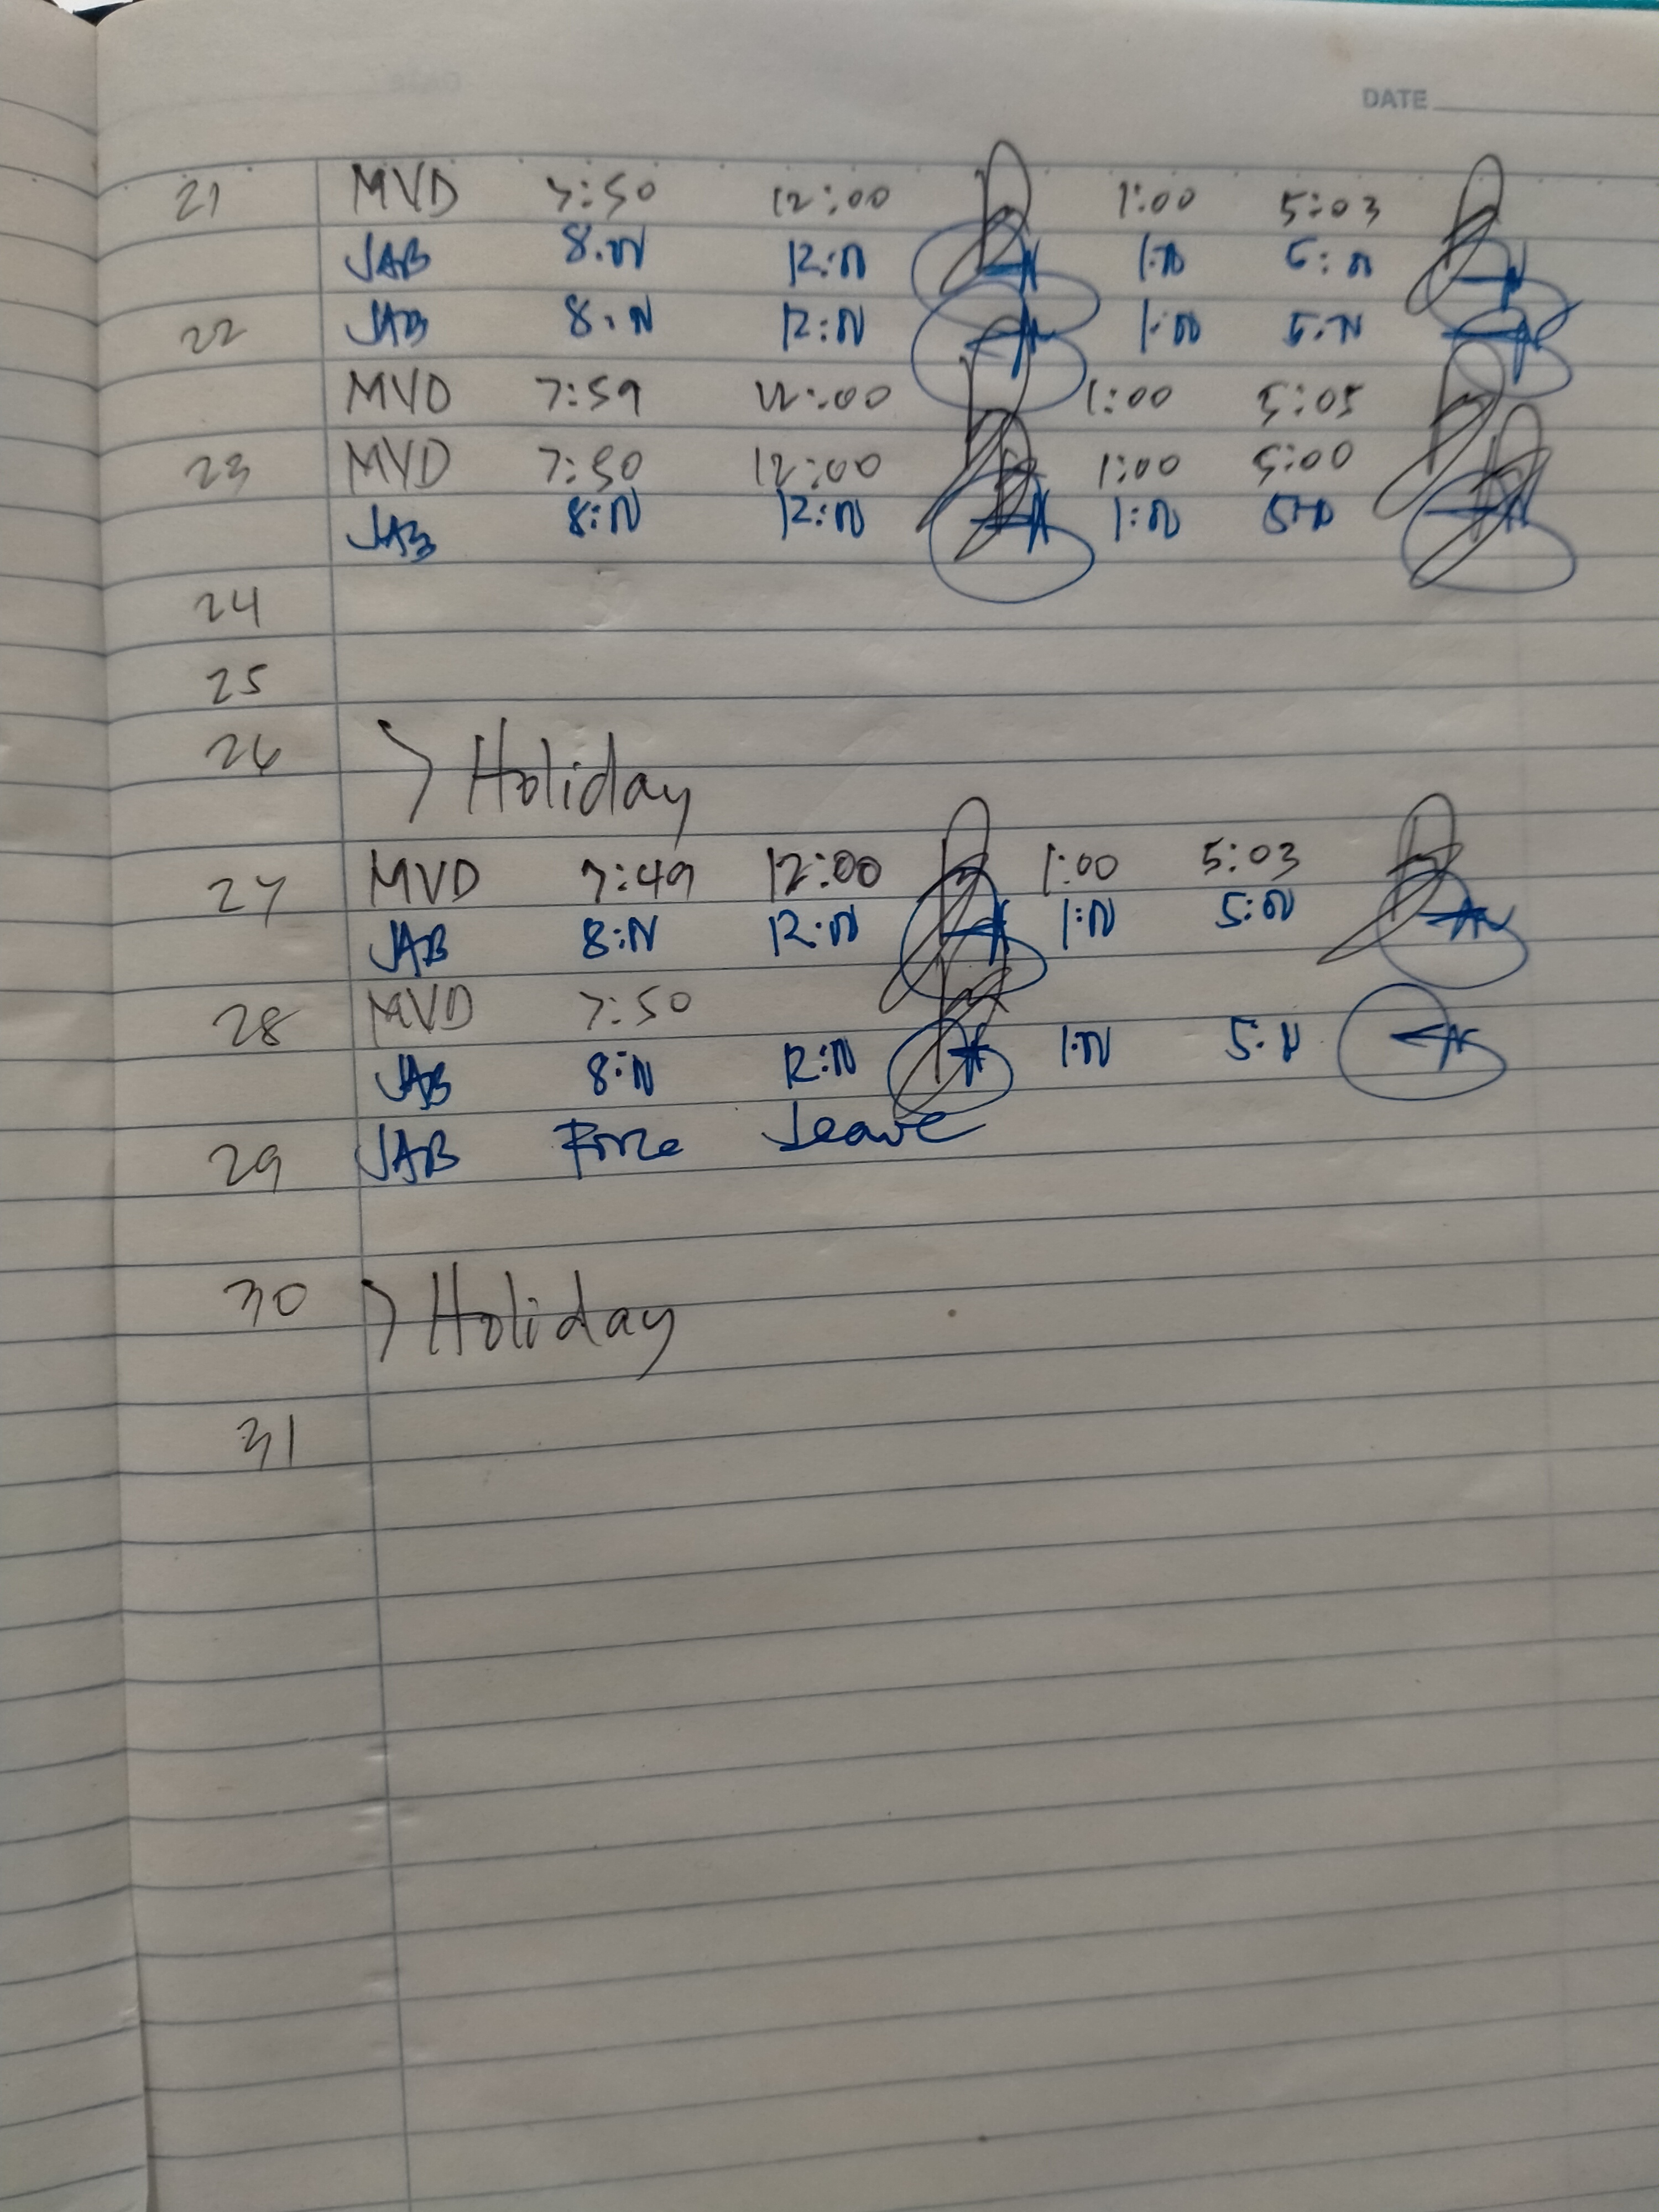 DATE
21 MVD 7:50 12:00 1:00 5:03
JAB 8:00 12:00 1:00 5:00
22 JAB 8:00 12:00 1:00 5:00
MVD 7:59 12:00 1:00 5:05
23 MVD 7:50 12:00 1:00 5:00
JAB 8:00 12:00 1:00 5:00
24
25
26 > Holiday
27 MVD 7:49 12:00 1:00 5:03
JAB 8:00 12:00 1:00 5:00
28 MVD 7:50
JAB 8:00 12:00 1:00 5:00
29 JAB Force Leave
30 > Holiday
31